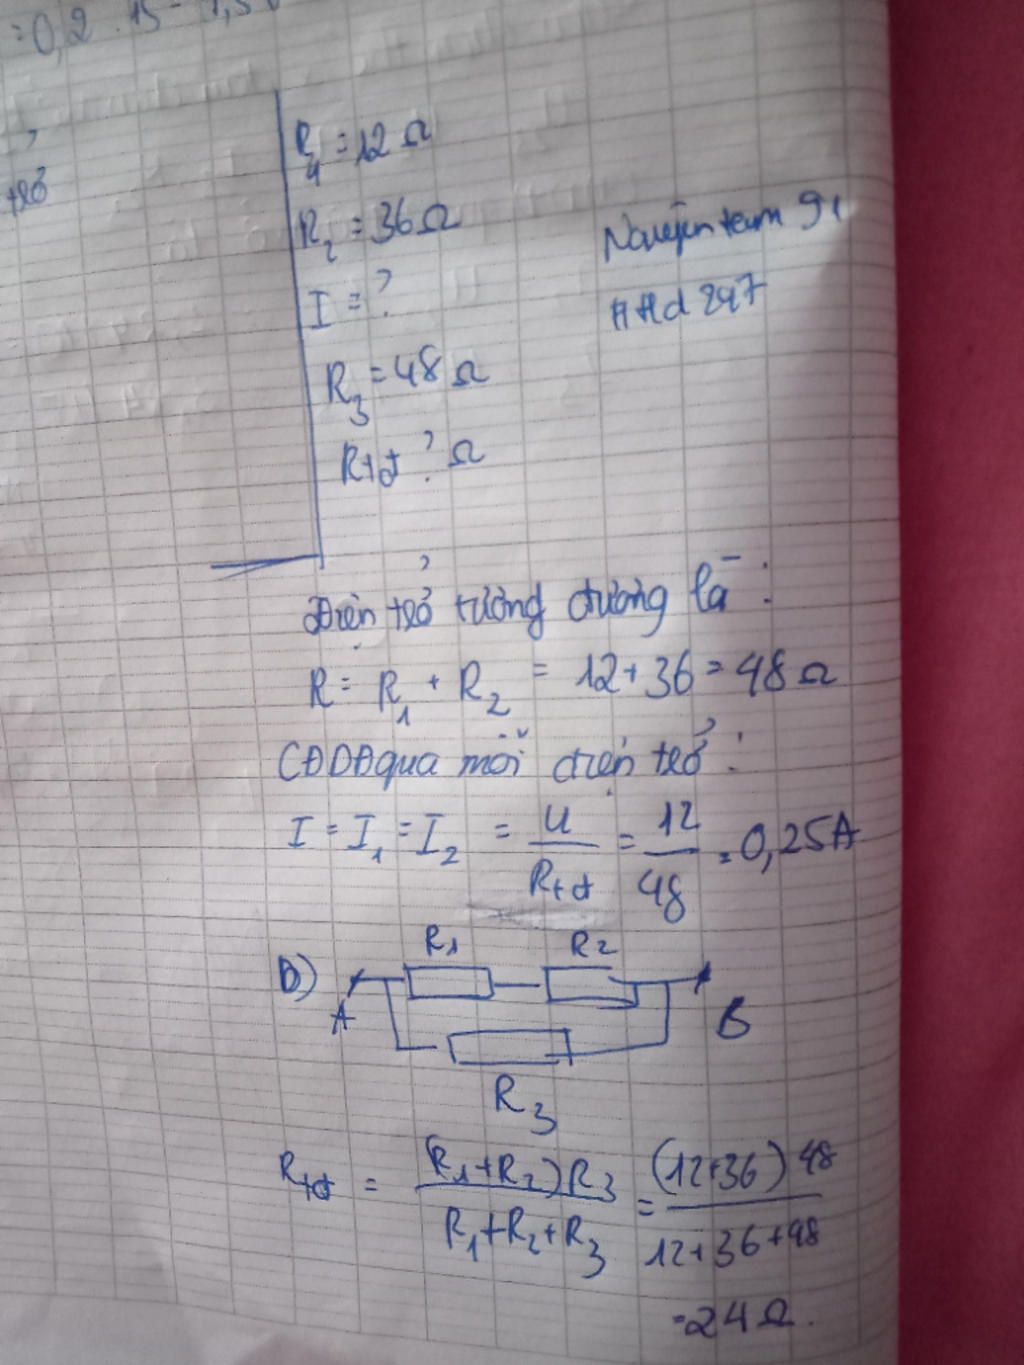 =0,2.15
trở
R1 = 12 Ω
R2 = 36 Ω
I = ?
R3 = 48 Ω
Rtđ ? Ω
91
247
Điện trở tương đương là :
R = R1 + R2 = 12 + 36 = 48 Ω
CĐDĐ qua mỗi điện trở :
I = I1 = I2 = U/Rtđ = 12/48 = 0,25A
B)
R1 R2
A B
R3
Rtđ = (R1+R2)R3/R1+R2+R3 = (12+36)48/12+36+48
=24Ω.